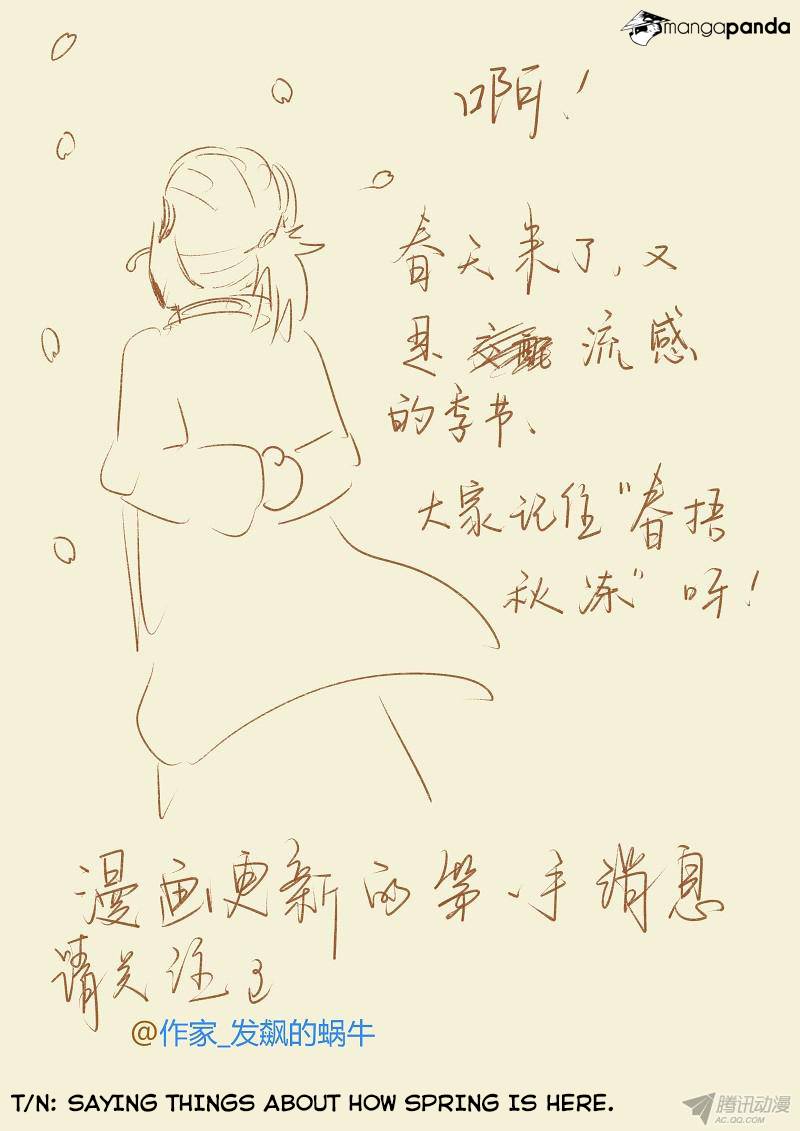 mangapanda
啊！
春天来了，又
是 交配 流感
的季节、
大家记住"春捂
秋冻"呀！
漫画更新的第一手消息
请关注
@作家_发飙的蜗牛
T/N: SAYING THINGS ABOUT HOW SPRING IS HERE.
腾讯动漫
AC.QQ.COM